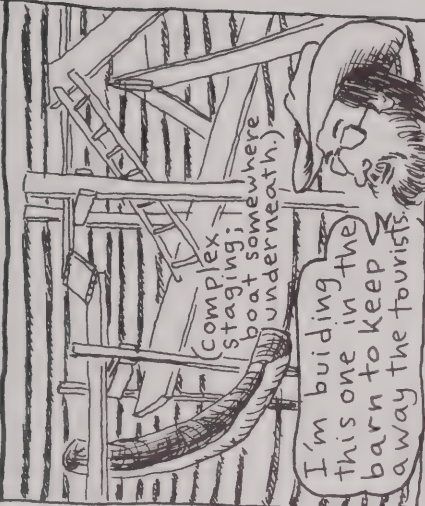 (complex
staging;
boat somewhere
underneath.)
I'm buiding
this one in the
barn to keep
away the tourists.